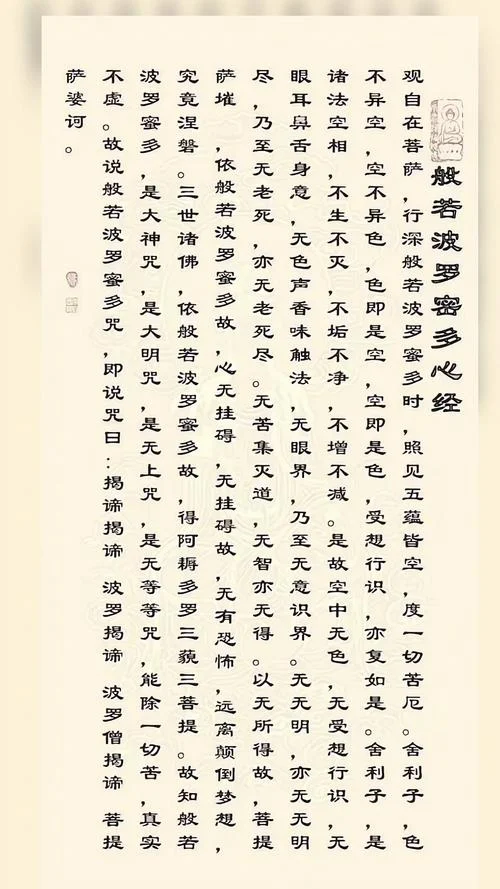 般若波罗密多心经
观自在菩萨，行深般若波罗蜜多时，照见五蕴皆空，度一切苦厄。舍利子，色
不异空，空不异色，色即是空，空即是色，受想行识，亦复如是。舍利子，是
诸法空相，不生不灭，不垢不净，不增不减。是故空中无色，无受想行识，无
眼耳鼻舌身意，无色声香味触法，无眼界，乃至无意识界。无无明，亦无无明
尽，乃至无老死，亦无老死尽。无苦集灭道，无智亦无得。以无所得故，菩提
萨埵，依般若波罗蜜多故，心无挂碍，无挂碍故，无有恐怖，远离颠倒梦想，
究竟涅磐。三世诸佛，依般若波罗蜜多故，得阿耨多罗三藐三菩提。故知般若
波罗蜜多，是大神咒，是大明咒，是无上咒，是无等等咒，能除一切苦，真实
不虚。故说般若波罗蜜多咒，即说咒曰：揭谛揭谛 波罗揭谛 波罗僧揭谛 菩提
萨婆诃。